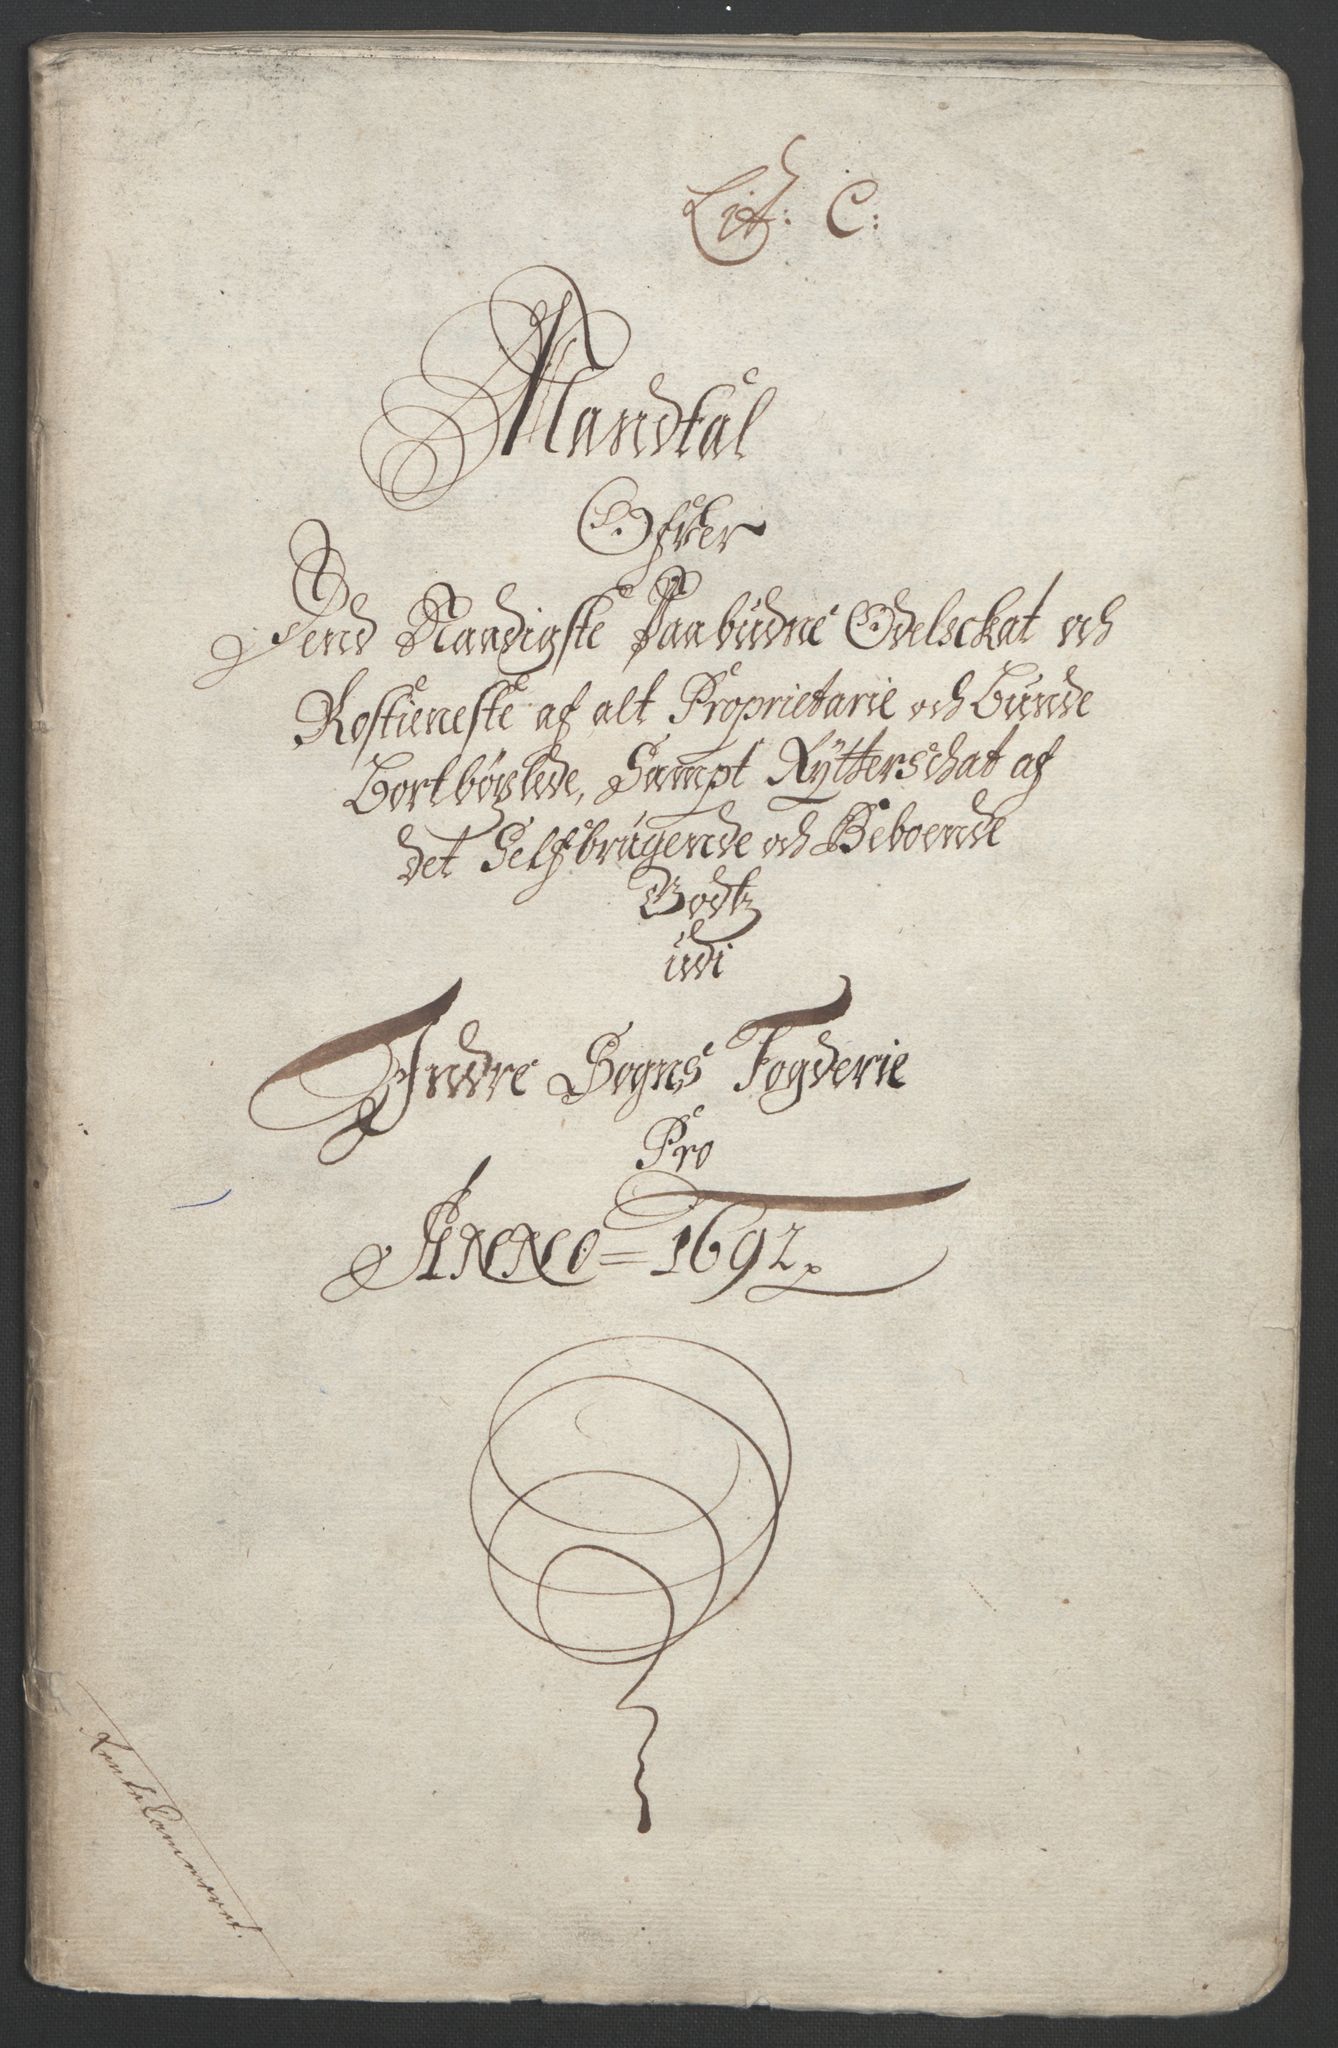 Lit: C:
Mandtal
Ofver
Dend Naadigste Paabudne Odelsckat och
Rostieneste af alt Proprietarie och Bunde
Bortbøxlede, Sampt Rytterschat af
det Selfbrugende och Beboende
Godtz
udi
Indre Sogns Fogderie
Pro
ANNO = 1692
RenteCammeret.